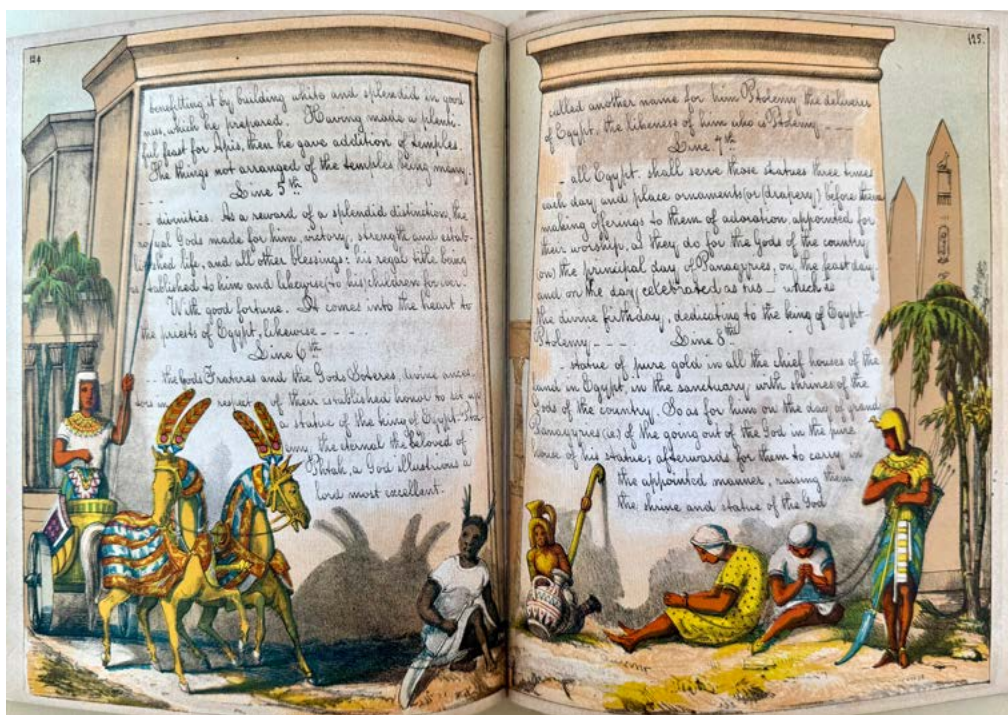 124
benefitting it by building white and splendid in good
ness, which he prepared. Having made a plenti-
ful feast for Apis, then he gave addition of temples.
The things not arranged of the temples being many.
---- Line 5th
-- divinities. As a reward of a splendid distinction, the
royal Gods made for him, victory, strength and estab-
lished life, and all other blessings: his regal title being
established to him and likewise (to his) children for ever.
With good fortune. It comes into the heart to
the priests of Egypt, likewise - - - - -
Line 6th
-- the Gods Fratures and the Gods Soteres, divine ances
tors in respect of their established honor to set up
a statue of the king of Egypt Ptol
emy, the eternal the beloved of
Phtah, a God illustrious a
lord most excellent.
125.
called another name for him Ptolemy the deliverer
of Egypt, the likeness of him who is Ptolemy - - - -
Line 7th
- all Egypt. shall serve those statues three times
each day and place ornaments (or (drapery) before them
making offerings to them of adoration, appointed for
their worship, as they do for the Gods of the country
(on) the principal day of Panagyries, on, the feast day.
and on the day celebrated as his - which is
the divine birthday, dedicating to the king of Egypt
Ptolemy - - - - Line 8th
- statue of pure gold in all the chief houses of the
land in Egypt, in the sanctuary with shrines of the
Gods of the country. So as for him on the day of grand
Panagyries (ie) of the going out of the God in the pure
house of his statue; afterwards for them to carry in
the appointed manner, raising them
the shrine and statue of the God